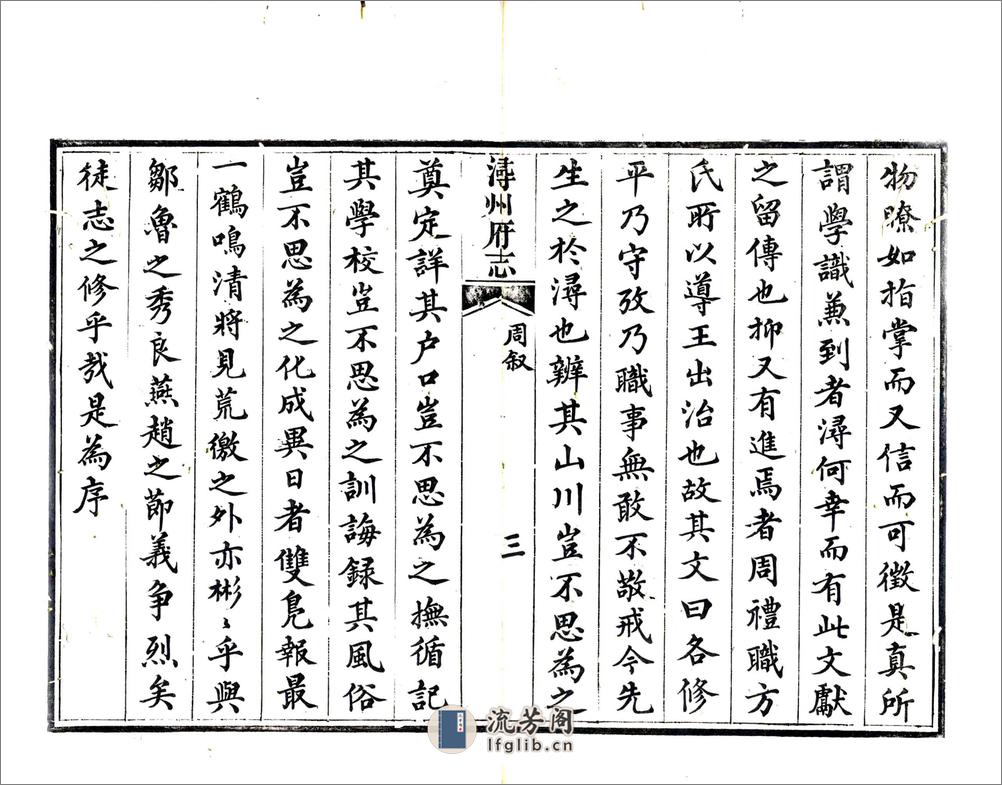 物瞭如指掌而又信而可徵是真所
謂學識兼到者潯何幸而有此文獻
之留傳也抑又有進焉者周禮職方
氏所以導王出治也故其文曰各修
平乃守攷乃職事無敢不敬戒今先
生之於潯也辨其山川豈不思為之
潯州府志
周叙
三
奠定詳其户口豈不思為之撫循記
其學校豈不思為之訓誨録其風俗
豈不思為之化成異日者雙鳧報最
一鶴鳴清將見荒徼之外亦彬〻乎與
鄒魯之秀良燕趙之節義争烈矣
徒志之修乎哉是為序
流芳阁
lfglib.cn